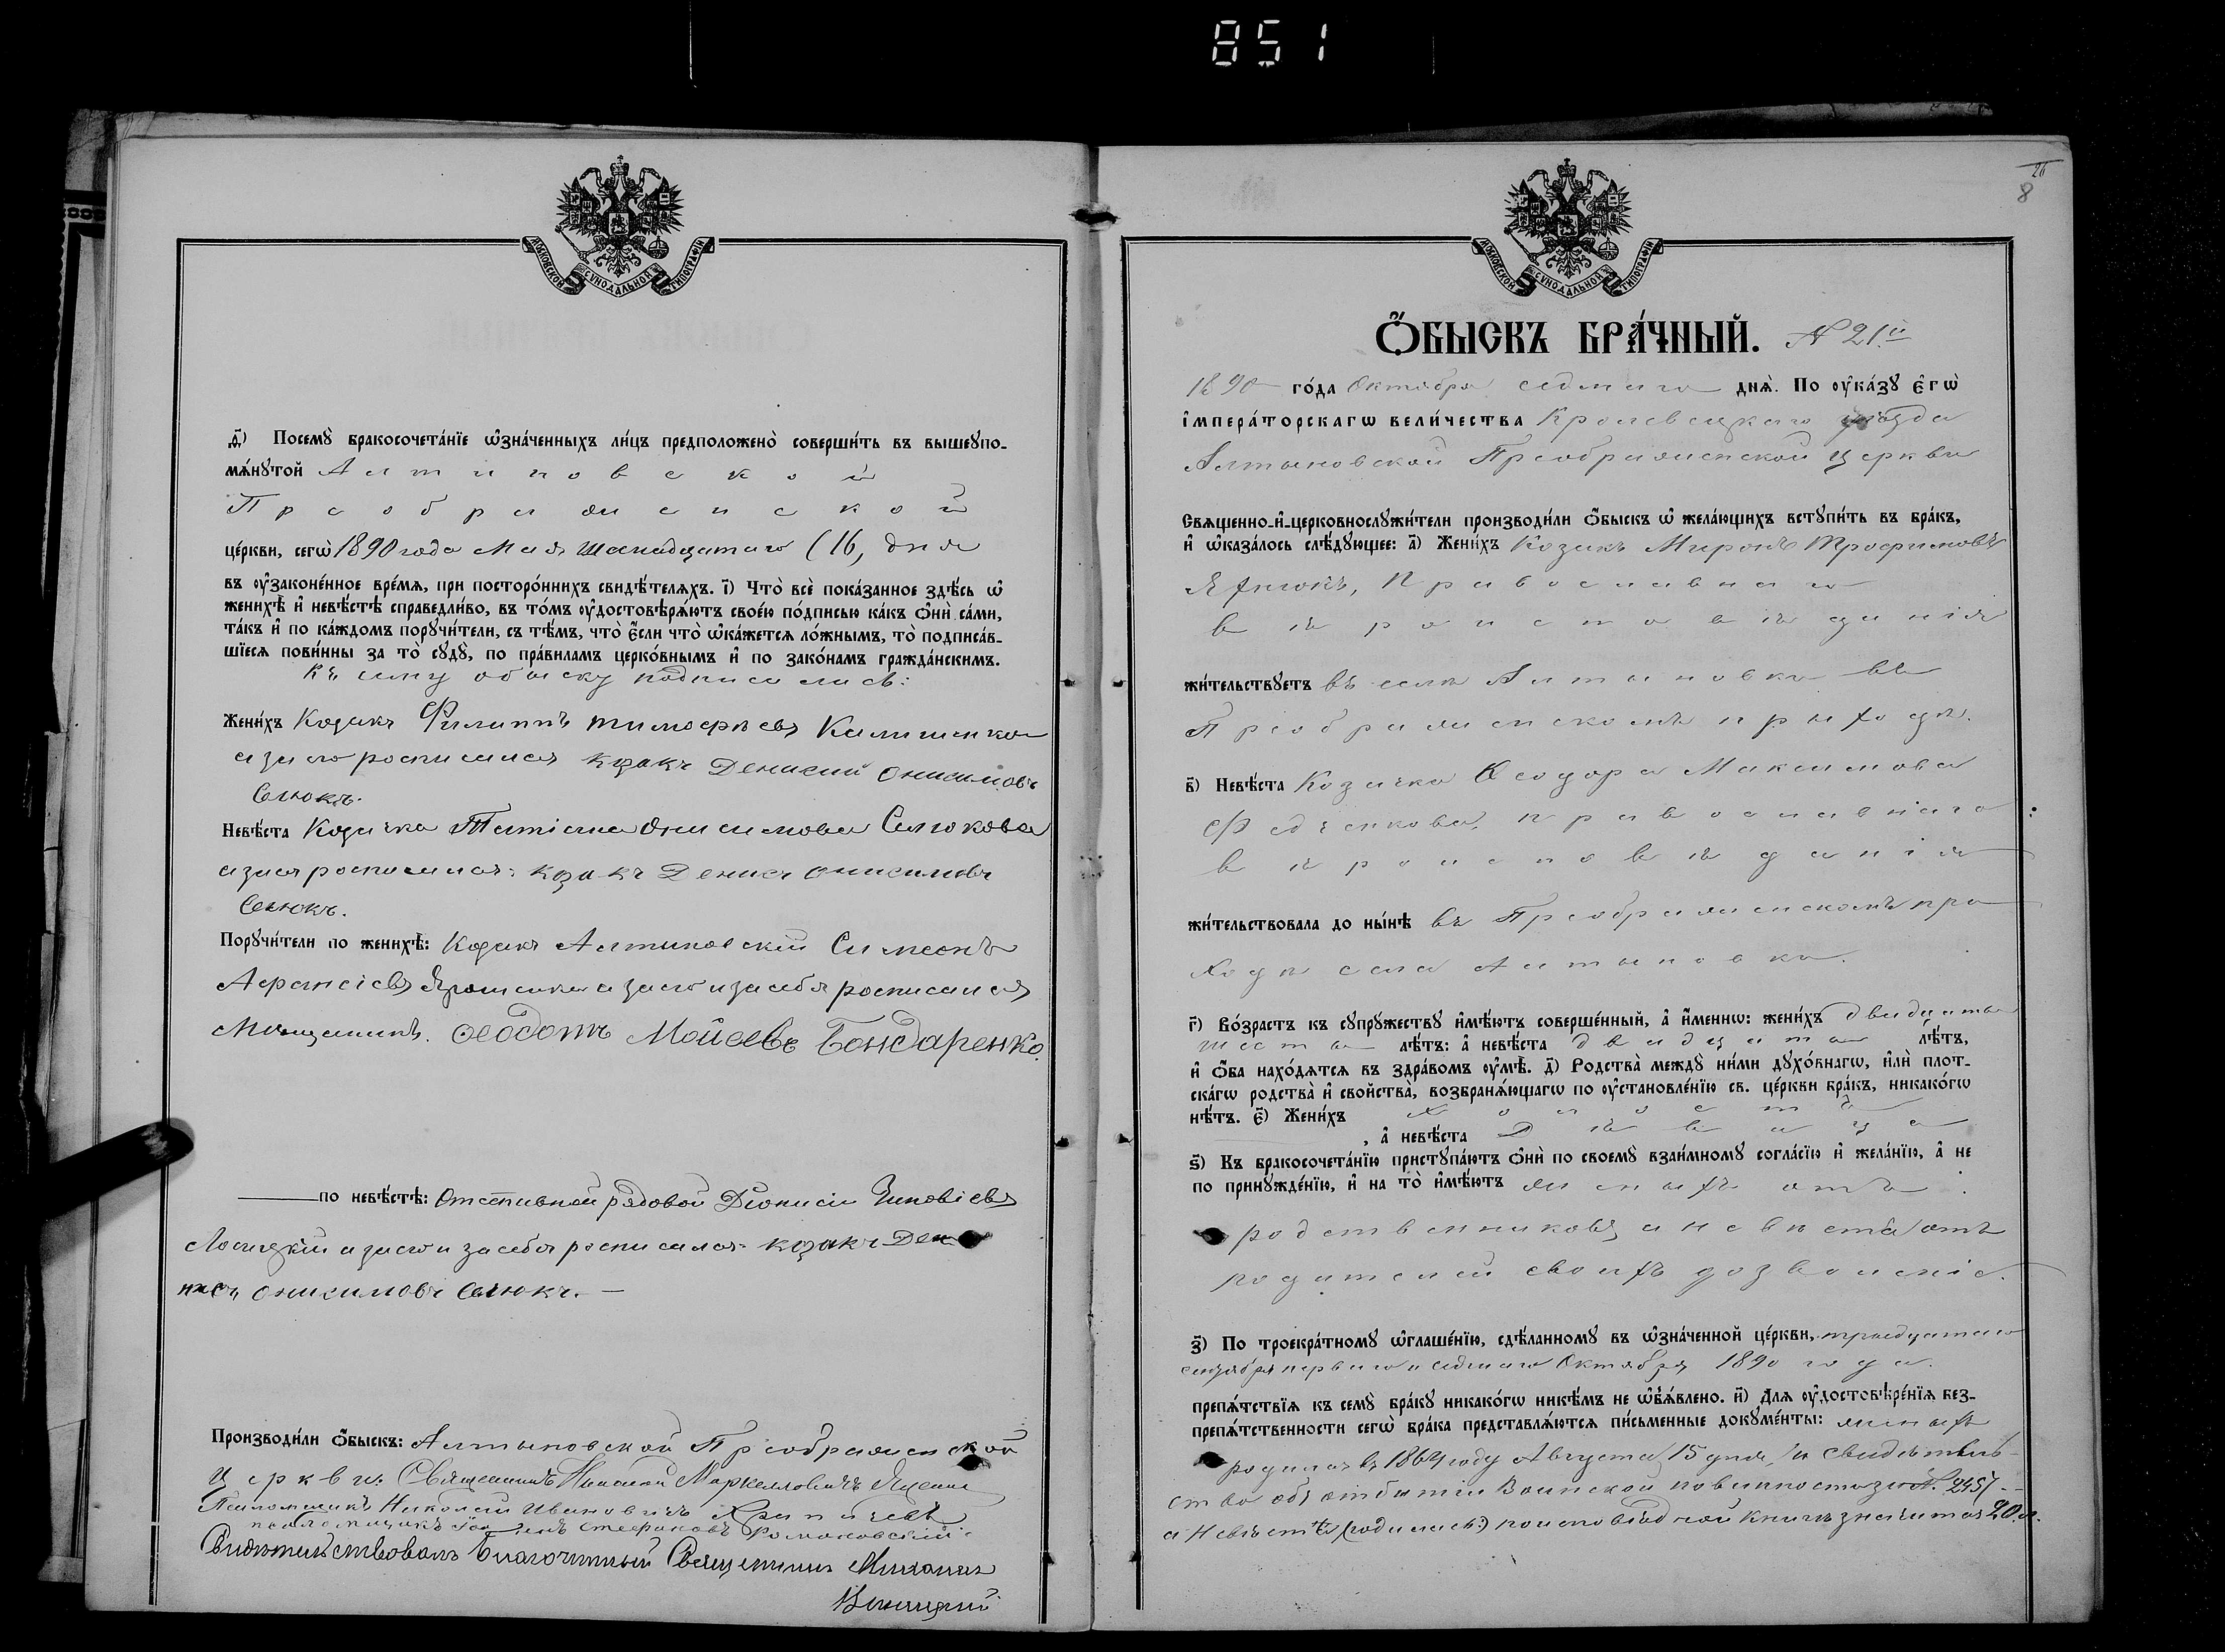 851
МОСКОВСКОЙ СѴНОДАЛЬНОЙ ТИПОГРАФІИ
д҃і) Посемꙋ̀ бракосочета́нїе ѡ҆зна́ченныхъ ли́цъ предположено̀ соверши́ть въ вышеꙋпо-
мѧ́нꙋтой Алтиновской
Преображенской
це́ркви, сегѡ̀ 1890 года Мая Шеснадцатаго (16, дня
въ ᲂу҆законе́нное вре́мѧ, при посторо́ннихъ свидѣ́телѧхъ. і҃) Что̀ всѐ пока́занное здѣ́сь ѡ҆
женихѣ̀ и҆ невѣ́стѣ справедли́во, въ то́мъ ᲂу҆достовѣрѧ́ютъ свое́ю по́дписью ка́къ ѻ҆нѝ са́ми,
та́къ и҆ по ка́ждомъ порꙋчи́тели, съ тѣ́мъ, что̀ є҆́сли что̀ ѡ҆ка́жетсѧ ло́жнымъ, то̀ подписа́в-
шїесѧ пови́нны за то̀ сꙋдꙋ̀, по пра́виламъ церко́внымъ и҆ по зако́намъ гражда́нскимъ.
Къ сему обыску подписались:
Жени́хъ Козакъ Филиппъ Тимофѣевъ Калишенко
а за его росписался козакъ Денисій Онисимовъ
Селюкъ.
Невѣ́ста Козачка Татіана Онисимова Селюкова
а за ея росписался: козакъ Денисъ Онисимовъ
Селюкъ.
Порꙋчи́тели по женихѣ̀: Козакъ Алтиновскій Симеонъ
Афанасіевъ а за его и за себя росписался
Мѣщанинъ. Ѳеодотъ Мойсеевъ Бондаренко.
по невѣ́стѣ: Отставной рядовой Діонисій Зиновіевъ
Лосицкій а за его и за себя росписался: козакъ Де
нисъ Онисимовъ Селюкъ. —
Производи́ли ѻ҆́быскъ: Алтыновской Преображенской
Церкви: Священникъ Маркелловичъ
Псаломщикъ Николай Ивановичъ
псаломщикъ Стефановъ Романовскій
Свидѣтельствовалъ Благочинный Священникъ Михаилъ
МОСКОВСКОЙ СѴНОДАЛЬНОЙ ТИПОГРАФІИ
8
Ѻ҆́БЫСКЪ БРА́ЧНЫЙ. № 21.й
1890 го́да Октября седмаго днѧ̀. По ᲂу҆ка́зꙋ є҆гѡ̀
і҆мпера́торскагѡ вели́чества Кролевецкаго уѣзда
Алтыновской Преображенской церкви
Свѧщенно-и҆-церковнослꙋжи́тели производи́ли ѻ҆́быскъ ѡ҆ жела́ющихъ встꙋпи́ть въ бра́къ,
и҆ ѡ҆каза́лось слѣ́дꙋющее: а҃) Жени́хъ Козакъ Миронъ Трофимовъ
Яхнюкъ, Православнаго
вѣроисповѣданія
жи́тельствꙋетъ въ селѣ Алтыновкѣ въ
Преображенскомъ приходѣ.
в҃) Невѣ́ста Козачка Ѳеодора Максимова
Федченкова, православнаго
вѣроисповѣданія
жи́тельствовала до ны́нѣ въ Преображенскомъ при
ходѣ села Алтыновки.
г҃) Во́зрастъ къ сꙋпрꙋ́жествꙋ и҆мѣ́ютъ соверше́нный, а҆ и҆́меннѡ: жени́хъ двадцать
шесть лѣ́тъ: а҆ невѣ́ста двадцать лѣ́тъ,
и҆ ѻ҆́ба нахо́дѧтсѧ въ здра́вомъ ᲂу҆мѣ̀. д҃) Родства̀ междꙋ̀ ни́ми дꙋхо́внагѡ, и҆лѝ плот-
ска́гѡ родства̀ и҆ свойства̀, возбранѧ́ющагѡ по ᲂу҆становле́нїю св. це́ркви бра́къ, никако́гѡ
нѣ́тъ. є҃) Жени́хъ холостъ
, а҆ невѣ́ста Дѣвица
ѕ҃) Къ бракосочета́нїю пристꙋпа́ютъ ѻ҆нѝ по своемꙋ̀ взаи́мномꙋ согла́сїю и҆ жела́нїю, а҆ не
по принꙋжде́нїю, и҆ на то̀ и҆мѣ́ютъ женихъ отъ
родственниковъ а невѣста отъ
родителей своихъ дозволеніе.
з҃) По троекра́тномꙋ ѡ҆глаше́нїю, сдѣ́ланномꙋ въ ѡ҆зна́ченной це́ркви, тридцатаго
сентября перваго и седмаго Октября 1890 года.
препѧ́тствїѧ къ семꙋ̀ бра́кꙋ никако́гѡ никѣ́мъ не ѡ҆б̾ѧ́влено. и҃) Длѧ ᲂу҆достовѣре́нїѧ без-
препѧ́тственности сегѡ̀ бра́ка представлѧ́ютсѧ пи́сьменные докꙋме́нты: женихъ
родился въ 1864 году Августа 15 дня, и свидѣтель-
ство объ отбытіи Воинской повинности за № 2457. —
а Невѣста (родилась:) по исповѣдной книгѣ значится 20 л.